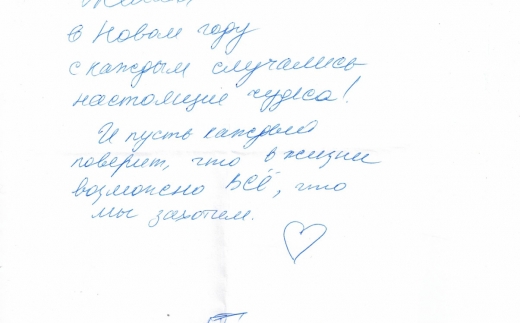 в Новом году
с каждым случались
настоящие чудеса!
И пусть каждый
поверит, что в жизни
возможно ВСЁ, что
мы захотим.